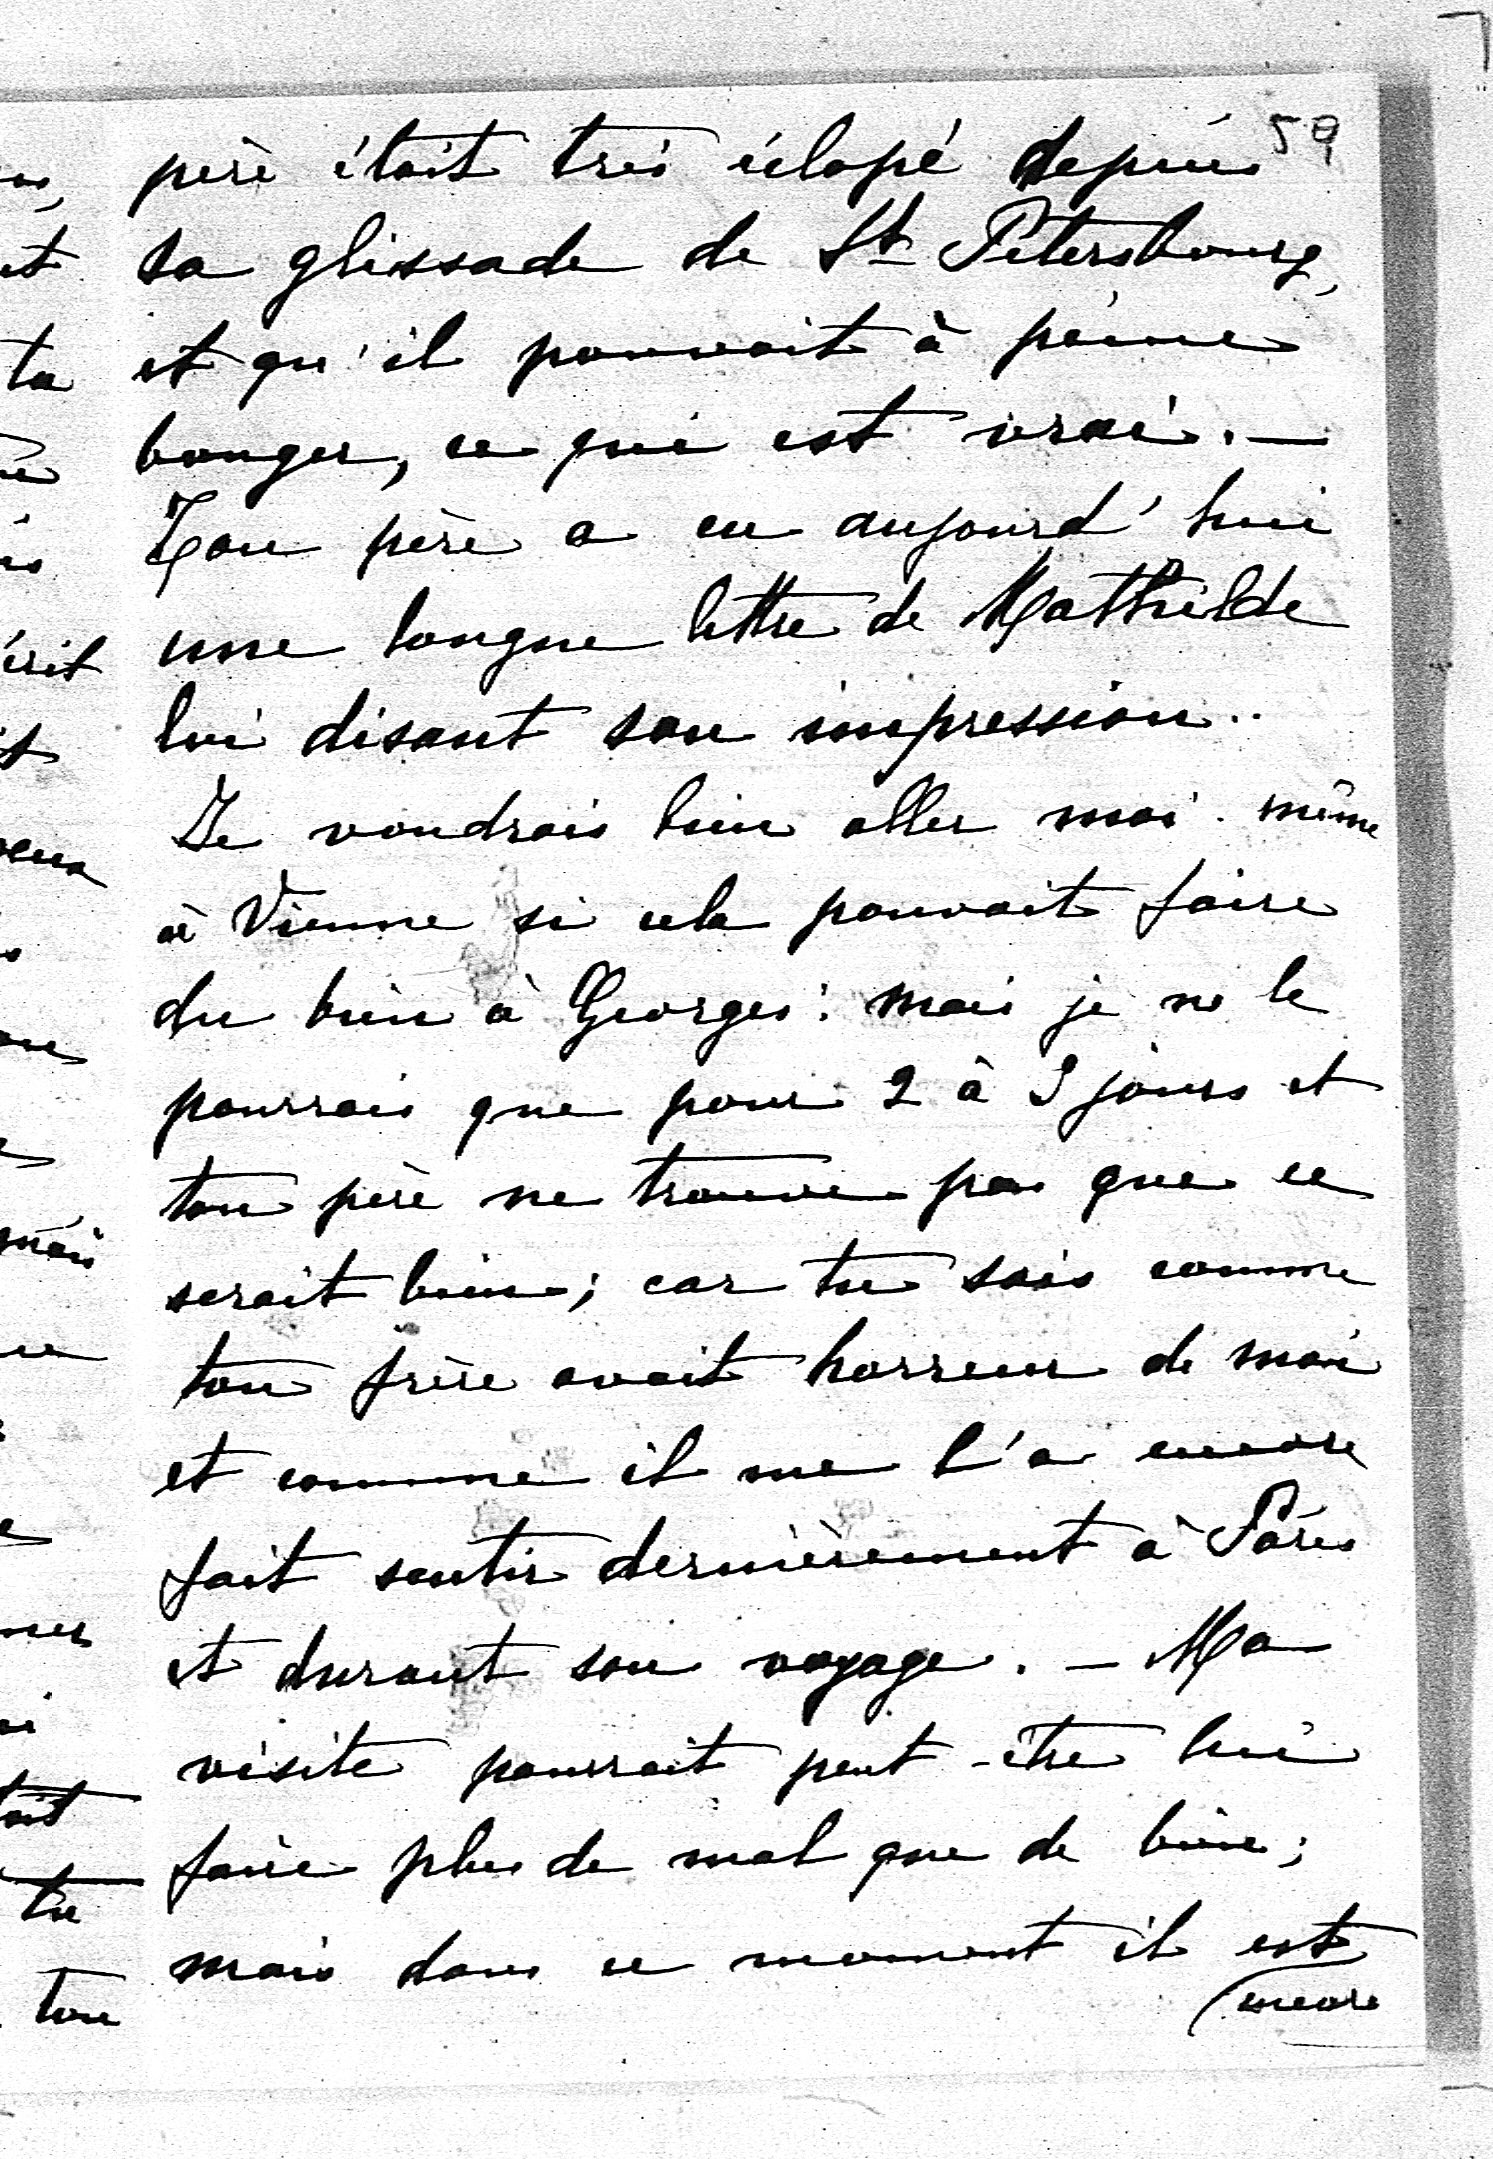 59
père était très éclopé depuis
sa glissade de St Pétersbourg,
et qu'il pouvait à peine
bouger, ce qui est vrai. —
Ton père a eu aujourd'hui
une longue lettre de Mathilde
lui disant son impression..
Je voudrais bien aller moi-même
à Vienne si cela pouvait faire
du bien à Georges: mais je ne le
pourrais que pour 2 à 3 jours et
ton père ne trouve pas que ce
serait bien; car tu sais comme
ton frère avait horreur de moi
et comme il me l'a encore
fait sentir dernièrement à Paris
et durant son voyage. — Ma
visite pourrait peut-être lui
faire plus de mal que de bien;
mais dans ce moment il est
encore